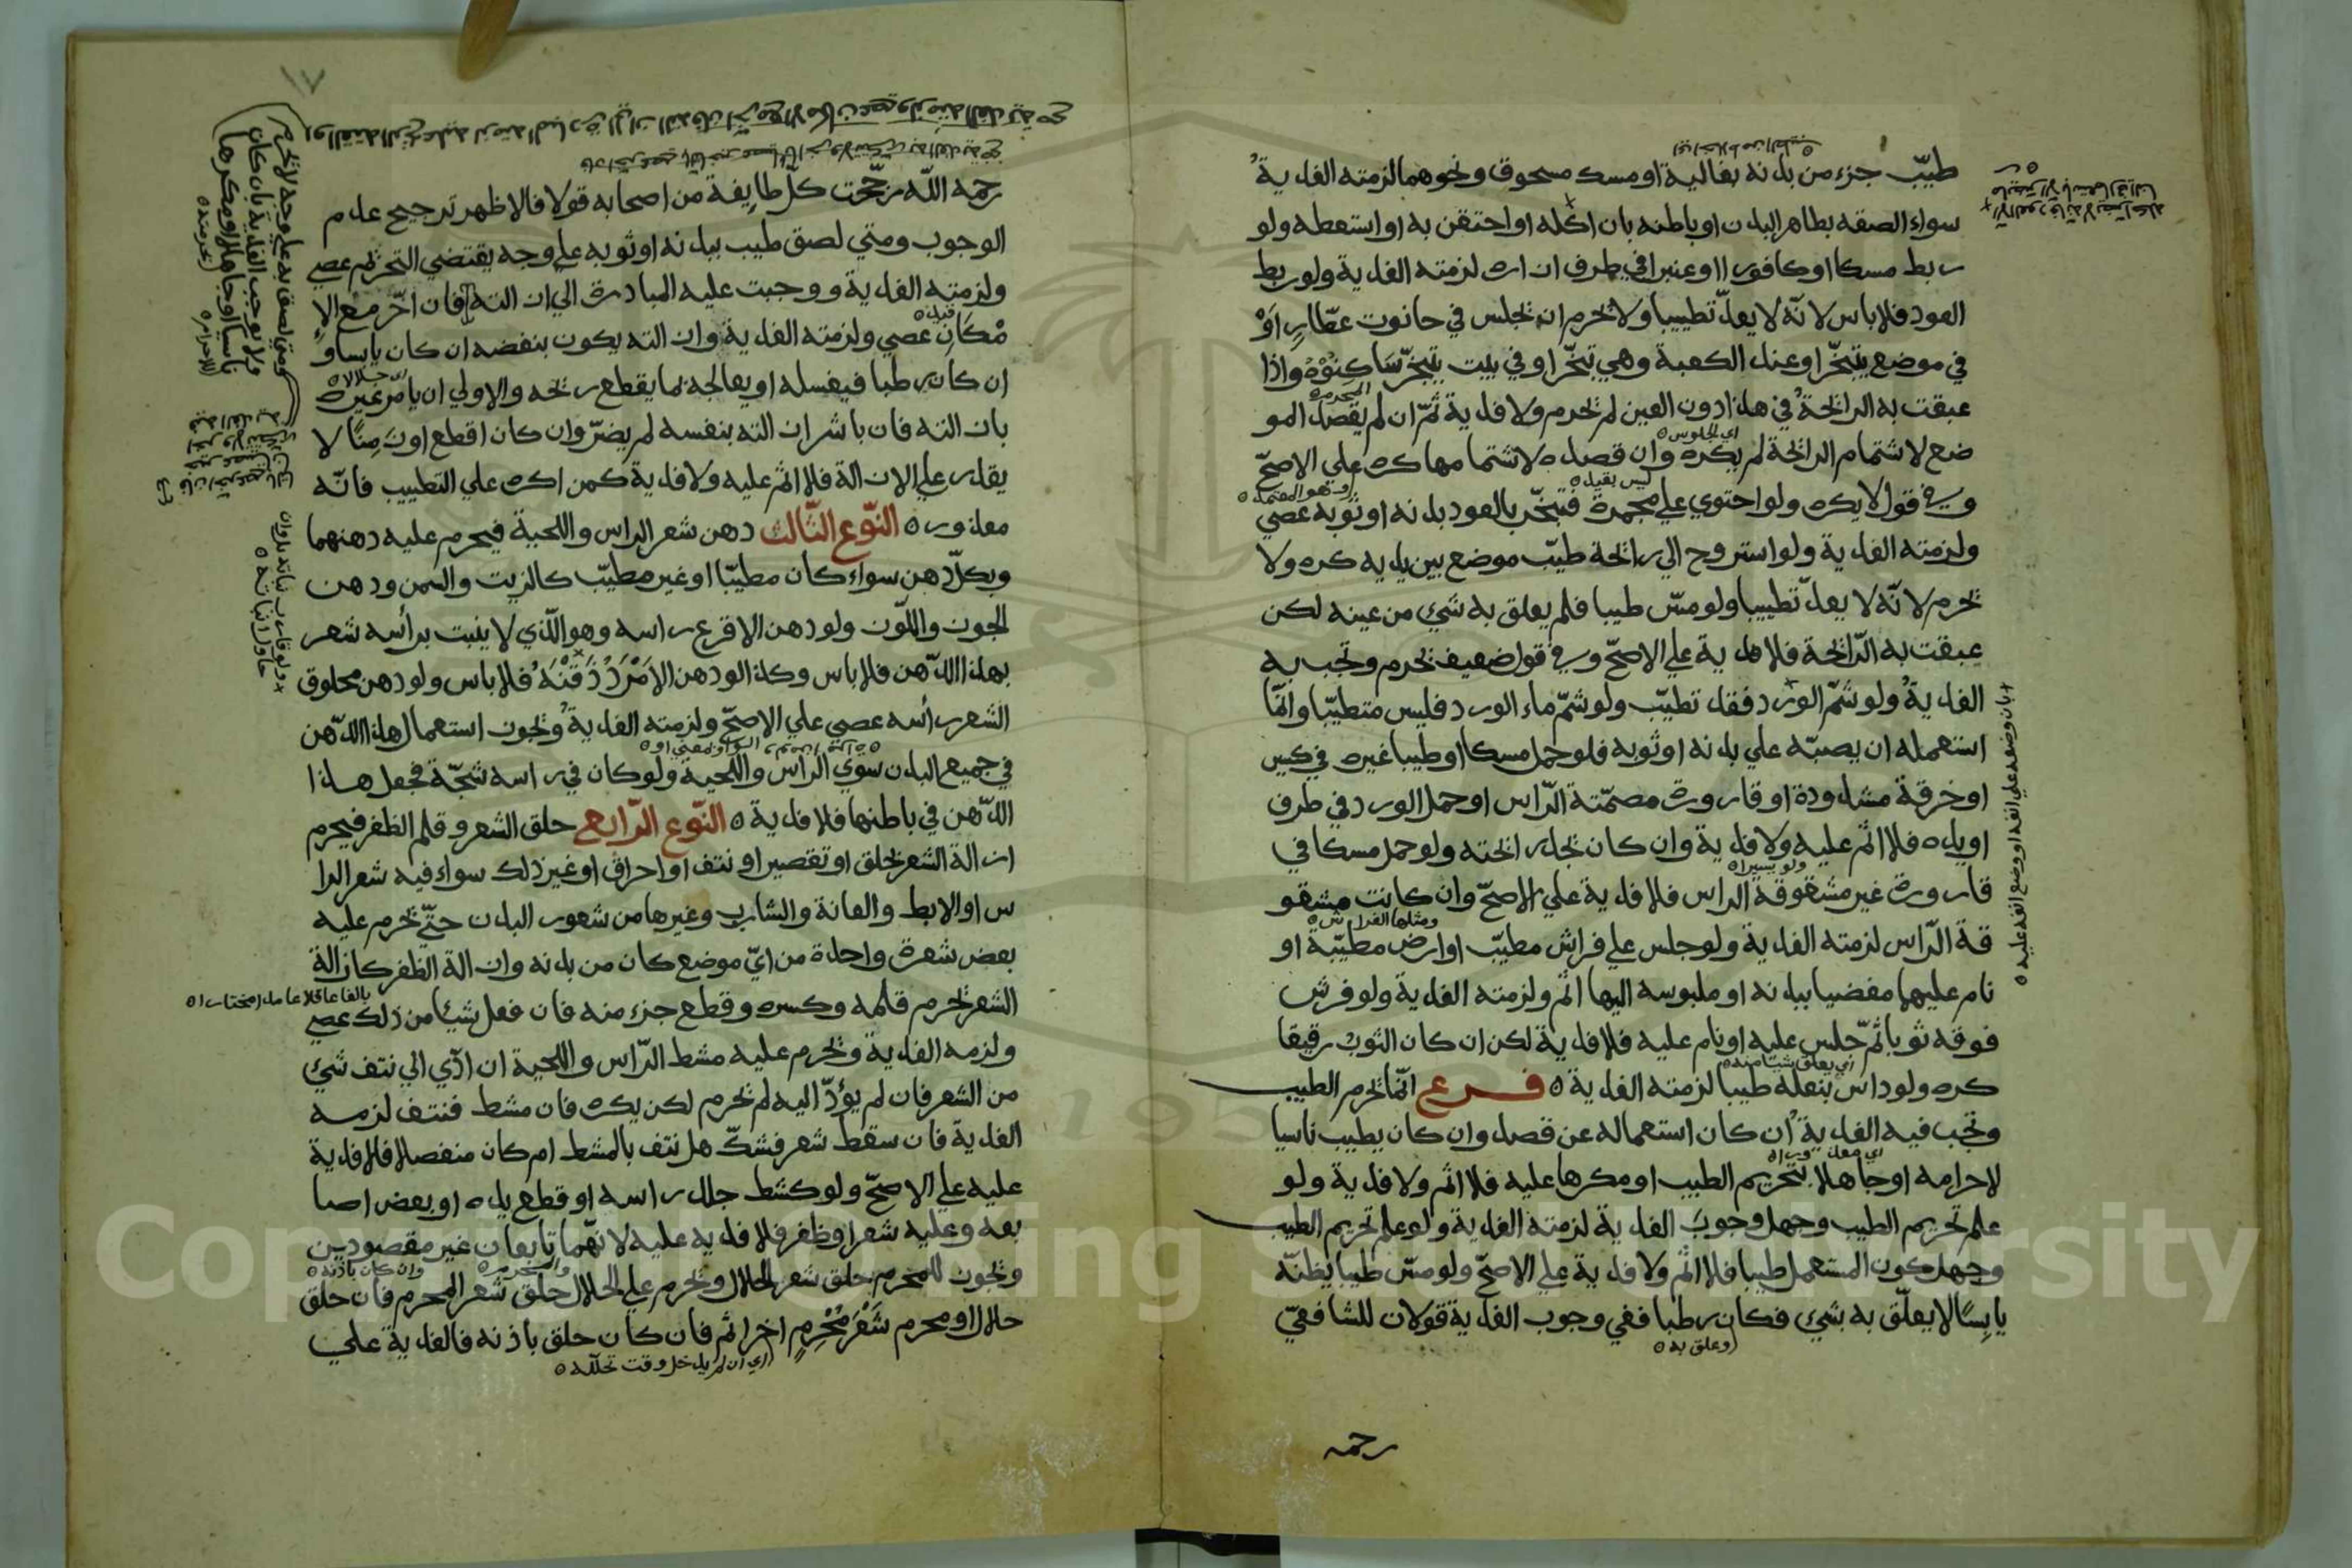 طيّب جزء من بدنه بغالية او مسك مسحوق ونحوهما لزمته الفدية
سواء الصقه بظاهر البدن او باطنه بان اكله او احتقن به او استعطه ولو
ربط مسكا او كافورا او عنبرا في طرف ازاره لزمته الفدية ولو ربط
العود فلا باس لانّه لا يعدّ تطييبا ولا يحرم ان يجلس في حانوت عطّارٍ اَوْ
في موضع يتبخّر او عند الكعبة وهي تبخّر او في بيت يتبخّر سَاكِنُوْهُ واذا
عبقت به الرائحة في هذا دون العين لم يحرم ولا فدية ثمّ ان لم يقصد المو
المحرم
ضع لاشتمام الرائحة لم يكره وان قصده لاشتمامها كره علي الاصحّ
اي الجلوس
وفي قول لا يكره ولو احتوي علي مجمرة فتبخّر بالعود بدنه او ثوبه عصي
ليس بقيد
وهو المعتمد
ولزمته الفدية ولو استروح الي رائحة طيّب موضع بين يديه كره ولا
يحرم لانّه لا يعدّ تطييبا ولو مسّ طيبا فلم يعلق به شيء من عينه لكن
عبقت به الرّائحة فلا فدية علي الاصحّ وفي قول ضعيف يحرم وتجب به
الفدية ولو شمّ الورد فقد تطيّب ولو شمّ ماء الورد فليس متطيّبا وانّما
استعمله ان يصبّه علي بدنه او ثوبه فلو حمل مسكا او طيبا غيره في كيس
او خرقة مشدودة او قارورة مصمّتة الرّاس او حمل الورد في ظرف
او يده فلا اثم عليه ولا فدية وان كان يجد رائحته ولو حمل مسكا في
ولو يسيرا
قارورة غير مشقوقة الراس فلا فدية علي الاصحّ وان كانت مشقو
قة الرّاس لزمته الفدية ولو جلس علي فراش مطيّب او ارض مطيّبة او
نام عليهما مفضيا ببدنه او ملبوسه اليها اثم ولزمته الفدية ولو فرش
فوقه ثوبا ثمّ جلس عليه او نام عليه فلا فدية لكن ان كان الثوب رقيقا
كره ولو داس بنعله طيبا لزمته الفدية ه فرع انّما يحرم الطيب
اي يعلق شيئا منه
وتجب فيه الفدية ان كان استعماله عن قصد وان كان يطيب ناسيا
لاحرامه او جاهلا بتحريم الطيب او مكرها عليه فلا اثم ولا فدية ولو
علم تحريم الطيب وجهل وجوب الفدية لزمته الفدية ولو علم تحريم الطيب
وجهل كون المستعمل طيبا فلا اثم ولا فدية علي الاصحّ ولو مسّ طيبا يظنّه
يابسًا لا يعلّق به شيء فكان رطبا ففي وجوب الفدية قولان للشافعيّ
وعلق به
رحمه
بان وضعه علي انفه او وضع انفه عليه
رحمه اللّه رجّحت كلّ طايفة من اصحابه قولا فالاظهر ترجيح عدم
الوجوب ومتي لصق طيب ببدنه او ثوبه علي وجه يقتضي التحريم عصي
ولزمته الفدية ووجبت عليه المبادرة الي ازالته فان اخّر مع الا
مْكَانِ عصي ولزمته الفدية وازالته يكون بنفضه ان كان يابسا و
ان كان رطبا فيغسله او يعالجه بما يقطع ريحه والاولي ان يامر غيره
حلالا
بازالته فان باشر ازالته بنفسه لم يضرّ وان كان اقطع او زَمِنًا لا
يقدر علي الازالة فلا اثم عليه ولا فدية كمن اكره علي التطييب فانّه
معذور ه النّوع الثّالث دهن شعر الراس واللحية فيحرم عليه دهنهما
وبكلّ دهن سواء كان مطيّبا او غير مطيّب كالزيت والسمن ودهن
الجوز واللّوز ولو دهن الاقرع راسه وهو الّذي لا ينبت برأسه شعر
بهذا الدّهن فلا باس وكذا لو دهن الامْرَدُ ذَقَنَهُ فلا باس ولو دهن محلوق
الشعر رأسه عصي علي الاصحّ ولزمته الفدية ويجوز استعمال هذا الدّهن
في جميع البدن سوي الراس واللّحية ولو كان في راسه شجّة فجعل هذا
الدّهن في باطنها فلا فدية ه النّوع الرّابع حلق الشعر وقلم الظفر فيحرم
ازالة الشعر بحلق او تقصير او نتف او احراق او غير ذلك سواء فيه شعر الرا
س او الابط والعانة والشارب وغيرها من شعور البدن حتّي يحرم عليه
بعض شعرة واحدة من ايّ موضع كان من بدنه وازالة الظفر كازالة
الشعر يحرم قلمه وكسره وقطع جزء منه فان فعل شيئا من ذلك عصي
بالغا عاقلا عامدا مختارا
ولزمه الفدية ويحرم عليه مشط الرّاس واللحية ان ادّي الي نتف شيء
من الشعر فان لم يؤدّ اليه لم يحرم لكن يكره فان مشط فنتف لزمه
الفدية فان سقط شعر فشكّ هل نتف بالمشط ام كان منفصلا فلا فدية
عليه علي الاصحّ ولو كشط جلد راسه او قطع يده او بعض اصا
بعه وعليه شعر او ظفر فلا فدية عليه لانّهما تابعان غير مقصودين
ويجوز للمحرم حلق شعر الحلال ويحرم علي الحلال حلق شعر المحرم فان حلق
وان كان باذنه
حلال او محرم شَعْرَ مُحْرِمٍ اخر اثم فان كان حلق باذنه فالفدية علي
اي ان لم يدخل وقت تحلّله